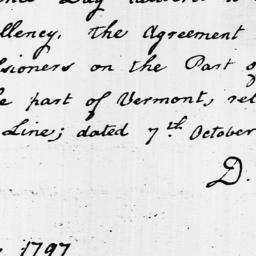 llency. The Agreement
sioners on the Part o
e part of Vermont, rel
Line; dated 7th October
D.
1797